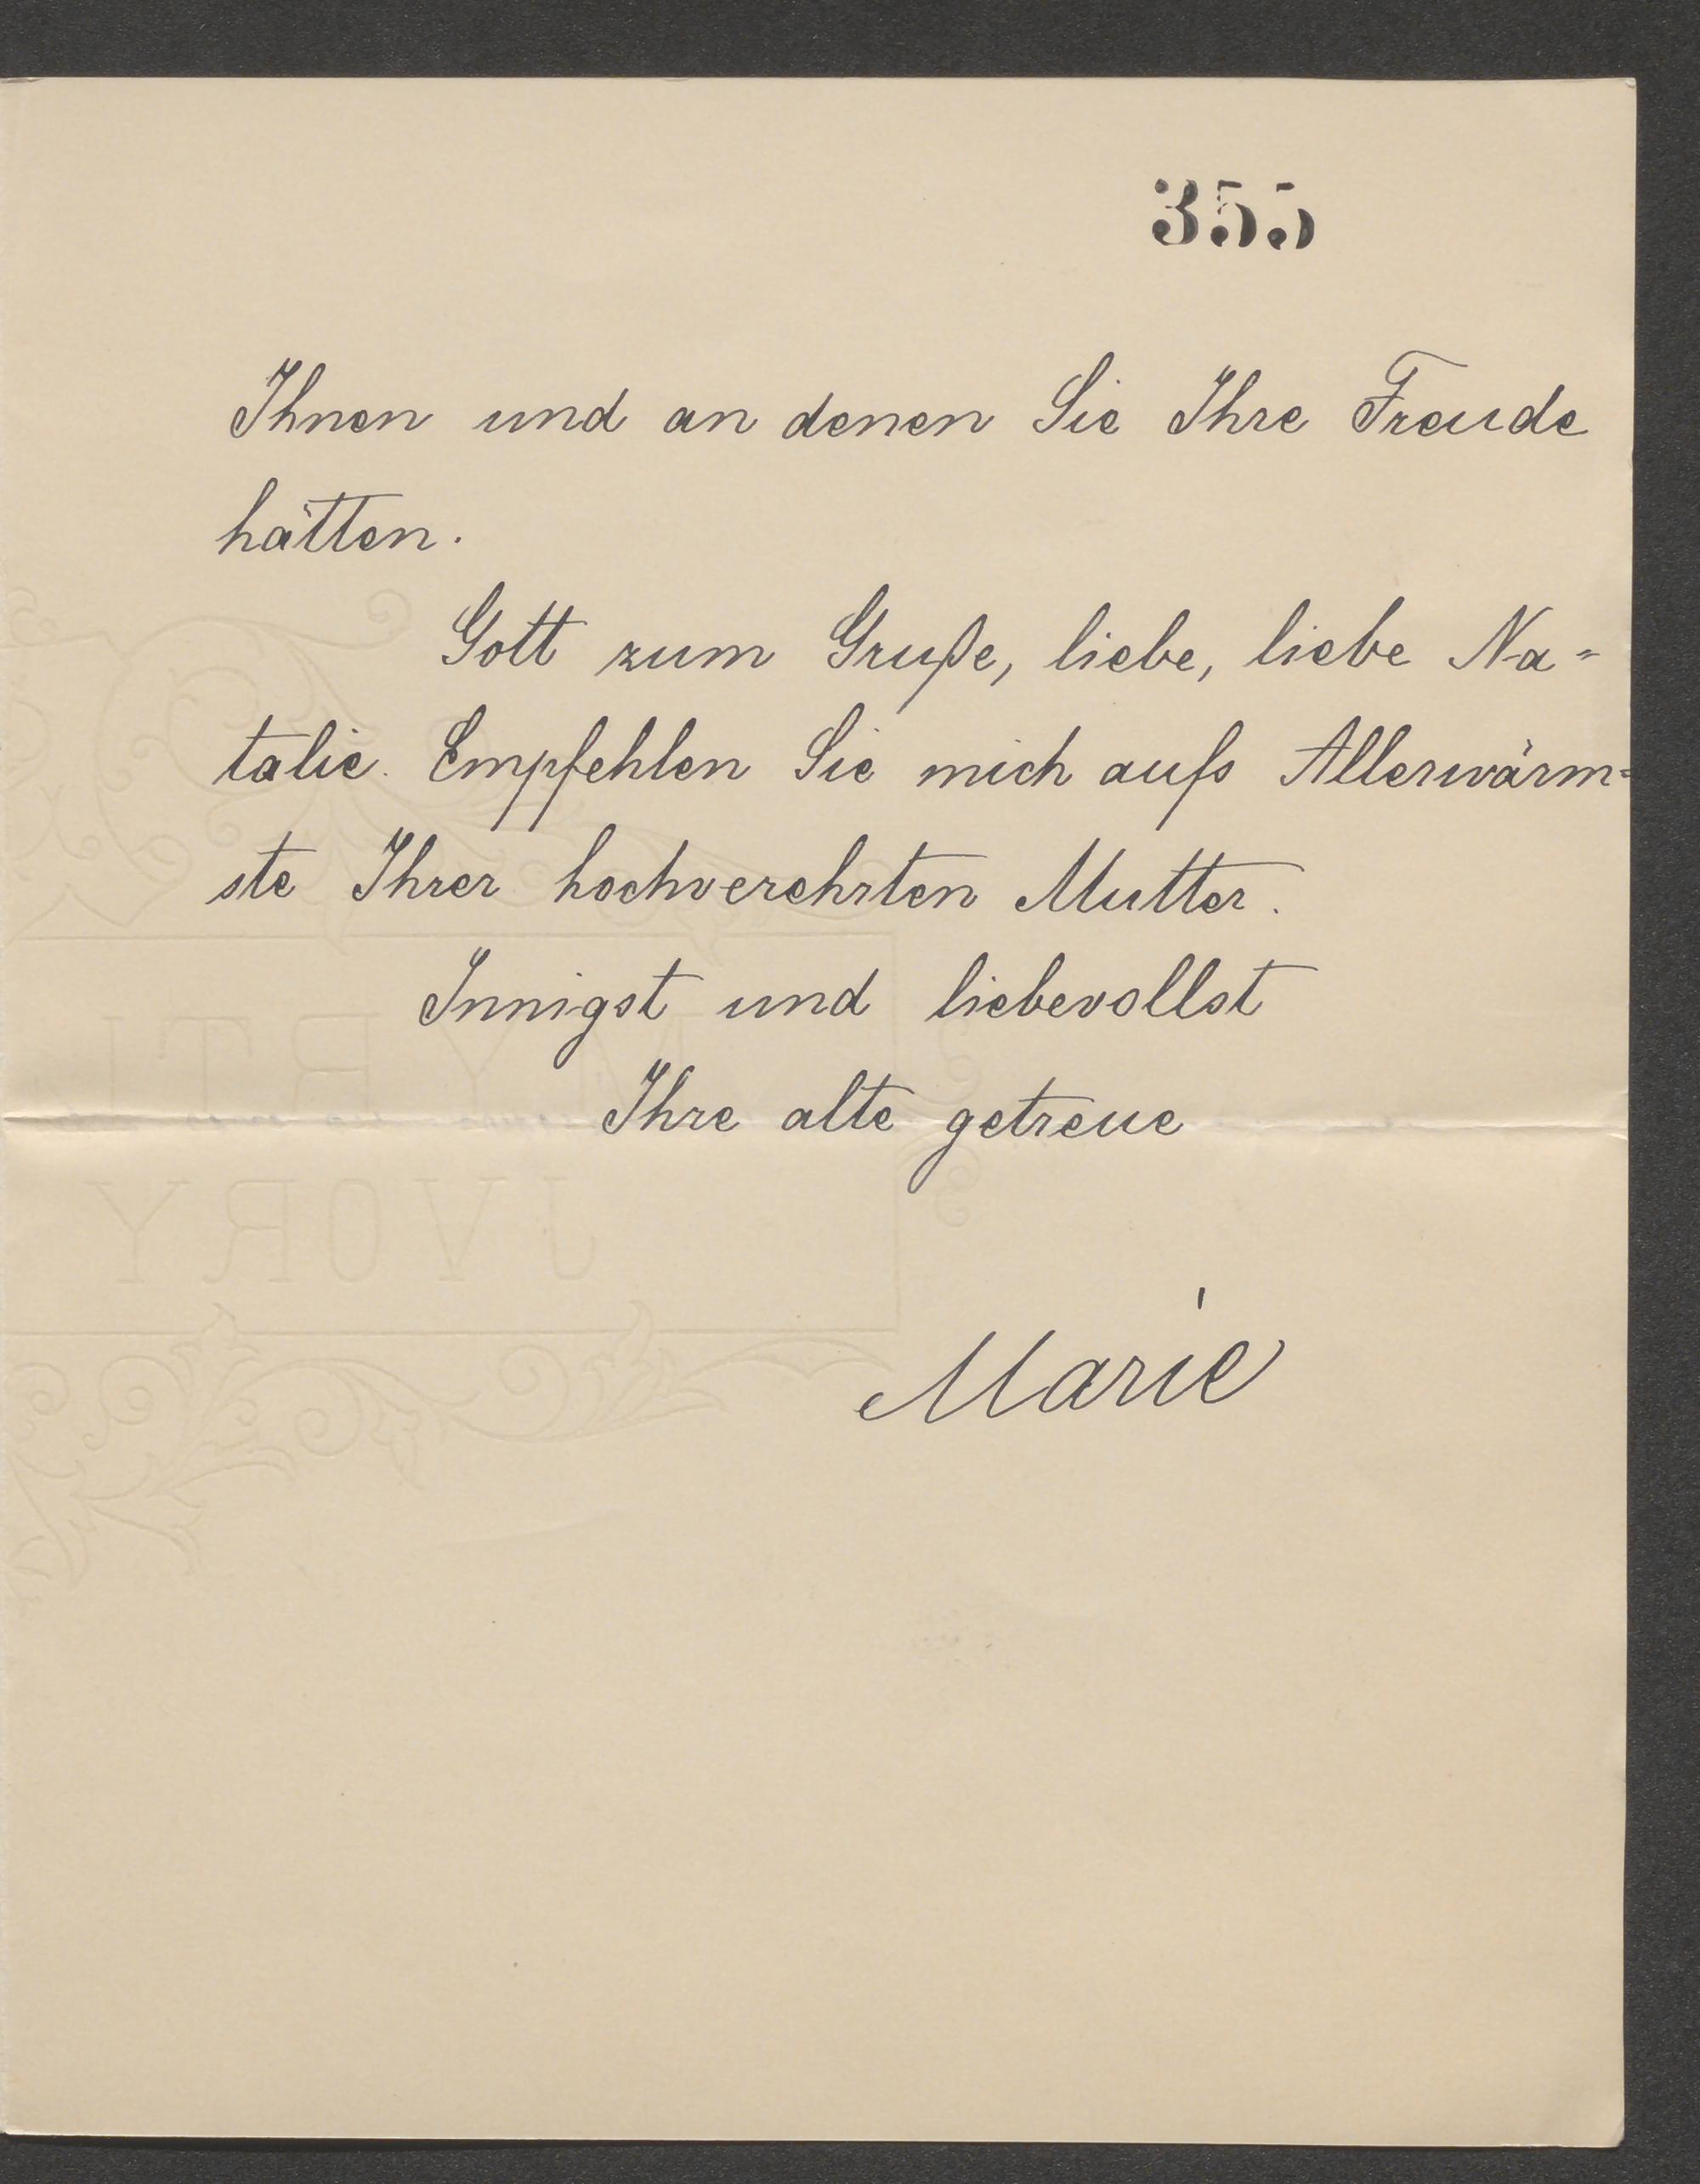 355
Ihnen und an denen Sie Ihre Freude
hätten.
Gott zum Gruße, liebe, liebe Na=
talie. Empfehlen Sie mich aufs Allerwärm=
ste Ihrer hochverehrten Mutter.
Innigst und liebevollst
Ihre alte getreue
MYRTL
JVORY
Marie